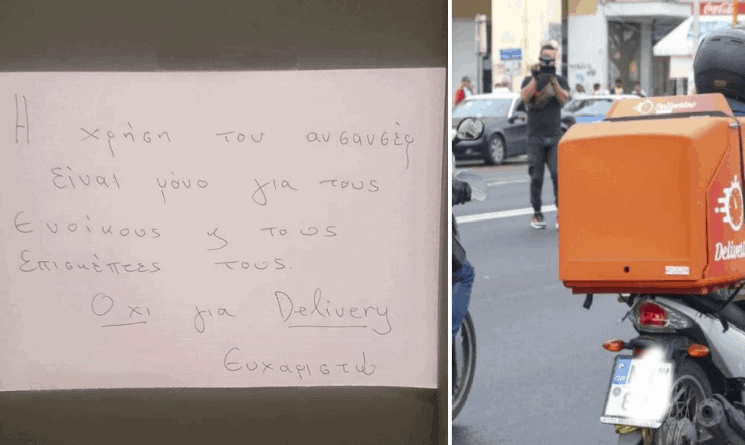 Η χρήση του ανσανσέρ
είναι μόνο για τους
ενοίκους ϗ τους
επισκέπτες τους.
Οχι για Delivery
Ευχαριστώ
Coca-Cola
Deliveras